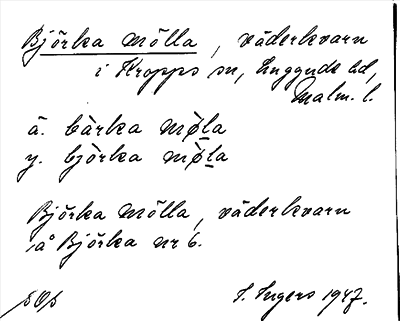 Björka Mölla, väderkvarn
i Kropps sn, Luggude hd,
Malm. l.
ä. bàrka mø̀la
y. bjòrka mø̀la
Björka Mölla, väderkvarn
å Björka nr 6.
I. Ingers 1947.